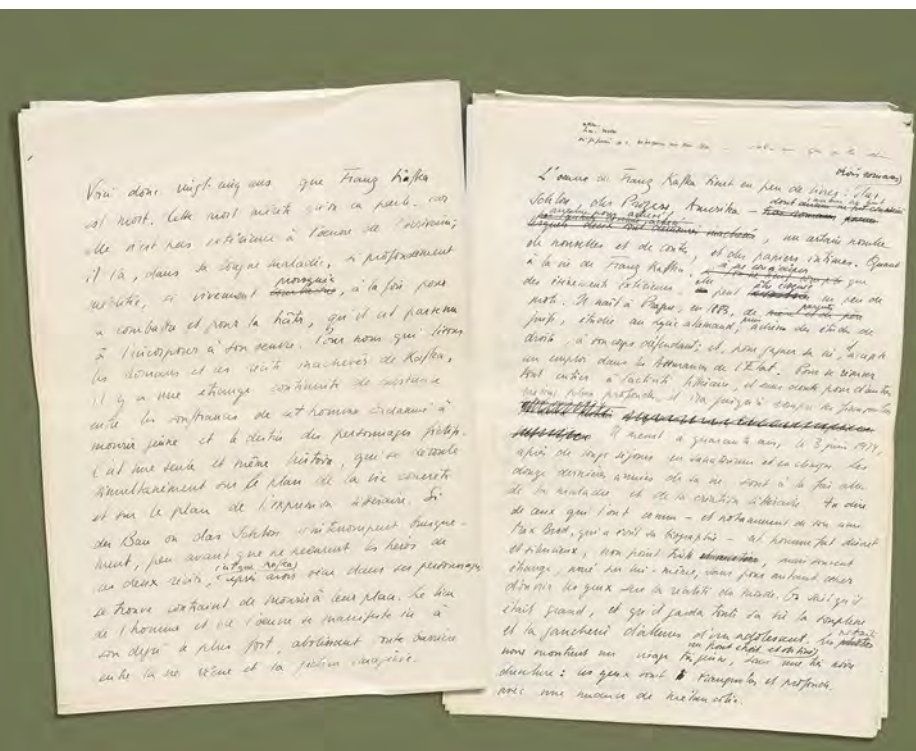 Voici donc vingt-cinq ans que Franz Kafka
est mort. Cette mort mérite qu'on en parle. car
elle n'est pas extérieure à l'œuvre de l'écrivain;
il l'a, dans sa longue maladie, si profondément
méditée, si vivement pourquoi, à la fois pour
a combattre et pour la hâter, qu'il est parvenu
à l'incorporer à son œuvre. Pour nous qui lisons
les romans et les récits inachevés de Kafka,
il y a une étrange continuité de substance
entre les souffrances de cet homme condamné à
mourir jeune et le destin des personnages fictifs.
C'est une seule et même histoire, qui se déroule
simultanément sur le plan de la vie concrète
et sur le plan de l'expression littéraire. Si
der Bau ou das Schloss s'interrompent brusque-
ment, peu avant que ne meurent les héros de
ces deux récits, c'est que Kafka après avoir vécu dans ses personnages
se trouve contraint de mourir à leur place. Le lien
de l'homme et de l'œuvre se manifeste ici à
son degré le plus fort, abolissant toute barrière
entre la vie vécue et la fiction imaginée.
L'œuvre de Franz Kafka tient en peu de livres: trois romans
Schloss, der Prozess, Amerika — un certain nombre
de nouvelles et de contes, et des papiers intimes. Quant
à la vie de Franz Kafka,
des événements extérieurs, peut en peu de
mots. Il naît à Prague, en 1883, de
juifs, étudie au lycée allemand, puis achève des études de
droit, à son corps défendant; et, pour gagner sa vie, accepte
un emploi dans les Assurances de l'Etat. Pour se consacrer
tout entier à l'activité littéraire, et sans doute pour d'autres
raisons plus profondes, il va jusqu'à rompre ses fiançailles
Il meurt à quarante ans, le 3 juin 1924,
après de longs séjours en sanatorium et en clinique. Les
douze dernières années de sa vie sont à la fois celles
de la maladie et de la création littéraire. Au dire
de ceux qui l'ont connu — et notamment de son ami
Max Brod, qui a écrit sa biographie — cet homme fut discret
et silencieux, non point triste, mais souvent
étrange, muré par lui-même, sans pour autant cesser
d'ouvrir les yeux sur la réalité du monde. On sait qu'il
était grand, et qu'il garda toute sa vie la souplesse
et la gaucherie d'allures d'un adolescent. Les portraits
nous montrent un visage très jeune, un front étroit et obstiné, sous une très noire
chevelure: les yeux sont tranquilles et profonds
avec une nuance de mélancolie.